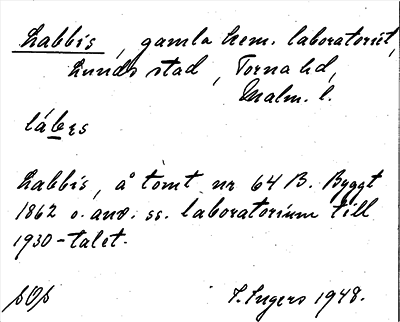 Labbis, gamla kem. laboratoriet,
Lunds stad, Torna hd,
Malm. l.
lábɪs
Labbis, å tomt nr 64 B. Byggt
1862 o. anv. ss. laboratorium till
1930-talet.
I. Ingers 1948.